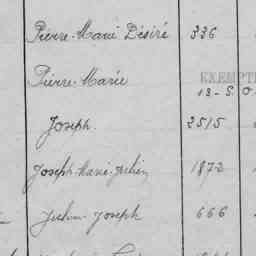 Pierre-Marie Désiré 336
Pierre-Marie EXEMPT
13-S.O
Joseph. 2515
Joseph-Marie-Julien 1872
Julien Joseph 666